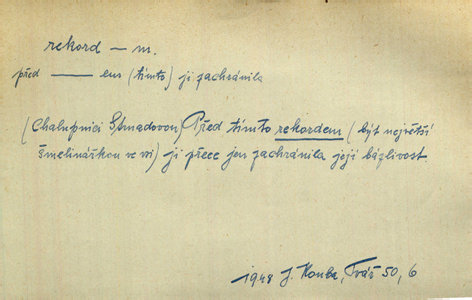 rekord — m.
před —— em (tímto) ji zachránila
(Chalupnici Strnadovou) Před tímto rekordem (být největší
šmelinářkou ve vsi) ji přece jen zachránila její bázlivost
1948 J. Kouba, Tvář 50, 6